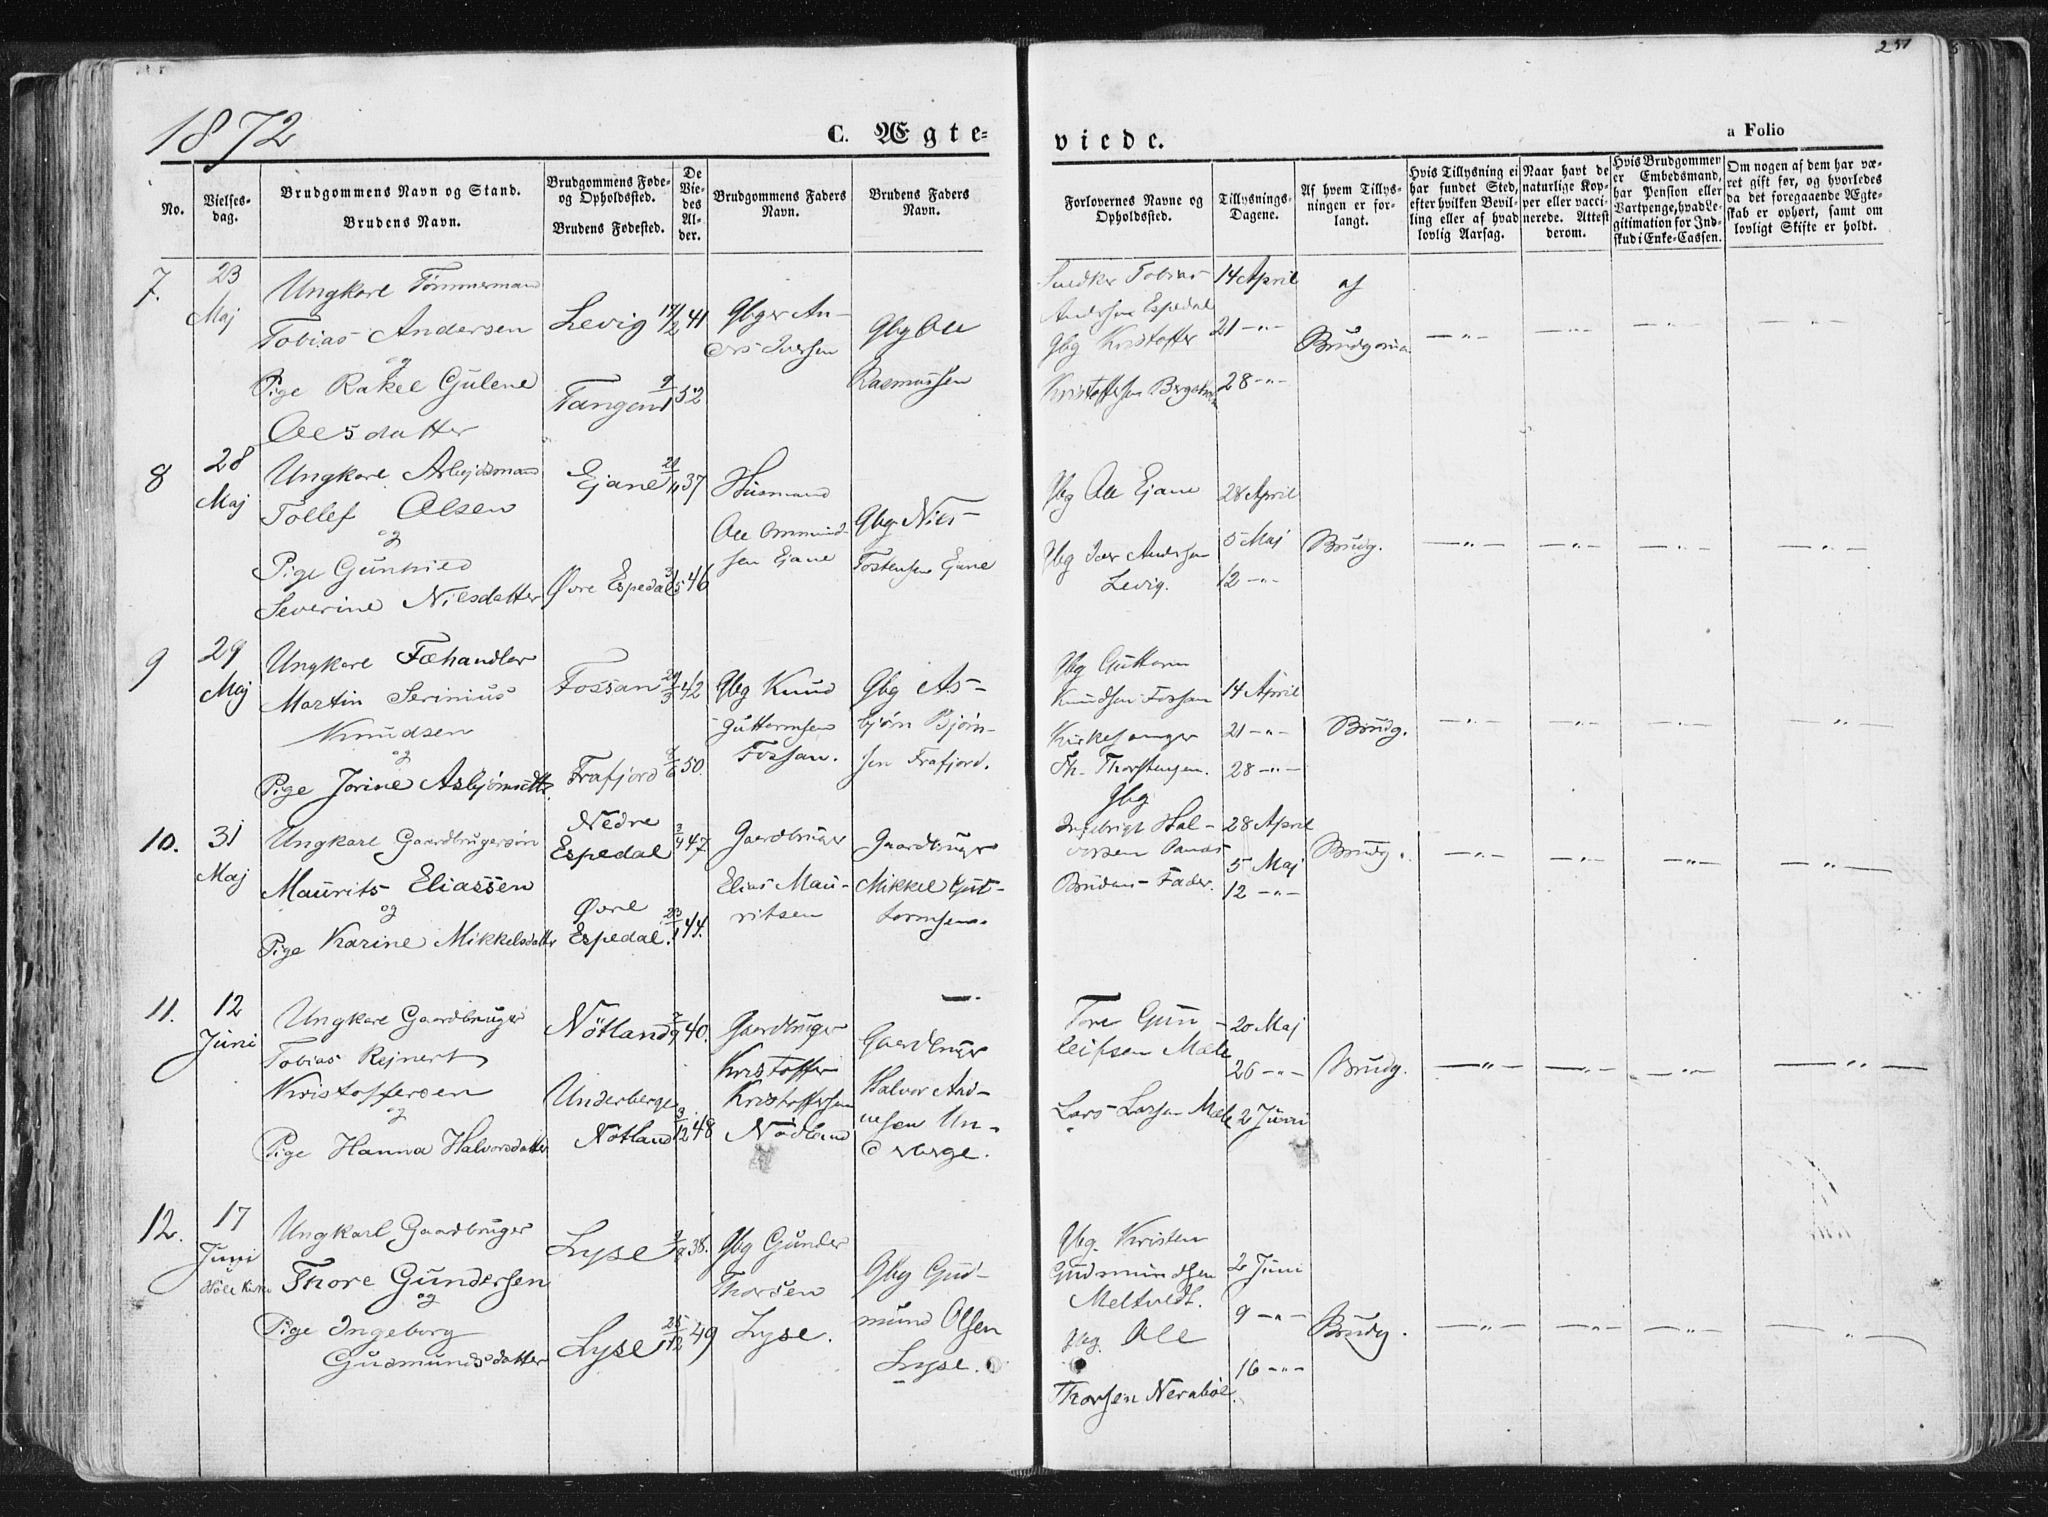 251
1872
C. Ægte-
viede.
a Folio
No.
Vielses-
dag.
Brudgommens Navn og Stand.
Brudens Navn.
Brudgommens Føde-
og Opholdssted.
Brudens Fødested.
De
Vie-
des
Al-
der.
Brudgommens Faders
Navn.
Brudens Faders
Navn.
Forlovernes Navne og
Opholdssted.
Tillysnings-
Dagene.
Af hvem Tillys-
ningen er for-
langt.
Hvis Tillysning ei
har fundet Sted,
efter hvilken Bevil-
ling eller af hvad
lovlig Aarsag.
Naar havt de
naturlige Kop-
per eller vacci-
nerede. Attest
derom.
Hvis Brudgommen
er Embedsmand,
har Pension eller
Vartpenge, hvad Le-
gitimation for Ind-
skud i Enke-Cassen.
Om nogen af dem har væ-
ret gift før, og hvorledes
da det foregaaende Ægte-
skab er ophørt, samt om
lovligt Skifte er holdt.
7.
23
Maj
Ungkarl Tømmermand
Tobias Andersen
og
Pige Rakel Gulene
Olesdatter
Levig
17/2 41
Tangen
9/1 52
Gbger An-
ders Iversen
Gbg Ole
Rasmussen
Snedker Tobias
Andersen Espedal
Gbg Kristoffer
Kristoffersen
14 April
21 -"-
28 -"-
af
Brudgom.
-"- -"- -"- -"-
8
28
Maj
Ungkarl Arbejdsmand
Tollef Olsen
og
Pige Gunhild
Severine Nilsdatter
Ejane
37
Øvre Espedal
46
Husmand
Ole Ommund-
sen Ejane
Gbg Nils
Tostensen Ejane
Gbg Ole Ejane
Gbg Iver Andersen
Levig.
28 April
5 Maj
12 -"-
Brudg.
-"- -"- -"- -"-
9
29
Maj
Ungkarl Fæhandler
Martin Serinius
Knudsen
og
Pige Jorine Asbjørnsdtr.
Fossan
42
Frafjord
50.
Gbg Knud
Guttormsen
Fossan.
Gbg As-
bjørn Bjørn-
sen Frafjord.
Gbg Guttorm
Knudsen Fossan
Kirkesanger
Th. Thorstensen.
14 April
21 -"-
28 -"-
Brudg.
-"- -"- -"- -"-
10.
31
Maj
Ungkarl Gaardbrugersøn
Maurits Eliassen
og
Pige Karine Mikkelsdatter
Nedre
Espedal
3/4 47.
Øvre
Espedal.
23/1 44.
Gaardbruger
Elias Mau-
ritsen
Gaardbruger
Mikkel Gut-
tormsen.
Gbg
Ingebrigt Hal-
vorsen
Brudens Fader.
28 April
5 Maj
12 -"-
Brudg.
-"- -"- -"- -"-
11.
12
Juni
Ungkarl Gaardbruger
Tobias Rejnert
Kristoffersen
og
Pige Hanna Halvorsdatter
Nötland
40.
Underberge
Nötland
3/12 48
Gaardbruger
Kristoffer
Kristoffersen
Nödland
Gaardbruger
Halvor And-
nesen Un-
derberge.
Tore Gun-
leifsen Mæle
Lars Larsen Mæle
20 Maj
26 -"-
2 Juni
Brudg.
-"- -"- -"- -"-
12.
17
Juni
Höle Kirke
Ungkarl Gaardbruger
Thore Gundersen
og
Pige Ingeborg
Gudmundsdatter
Lyse
38.
Lyse
25/12 49
Gbg Gunder
Thorsen
Lyse.
Gbg Gud-
mund Olsen
Lyse.
Gbg. Kristen
Gudmundsen
Meltvedt.
Gbg. Ole
Thorsen Nerabøe.
2 Juni
9 -"-
16 -"-
Brudg.
-"- -"- -"- -"-